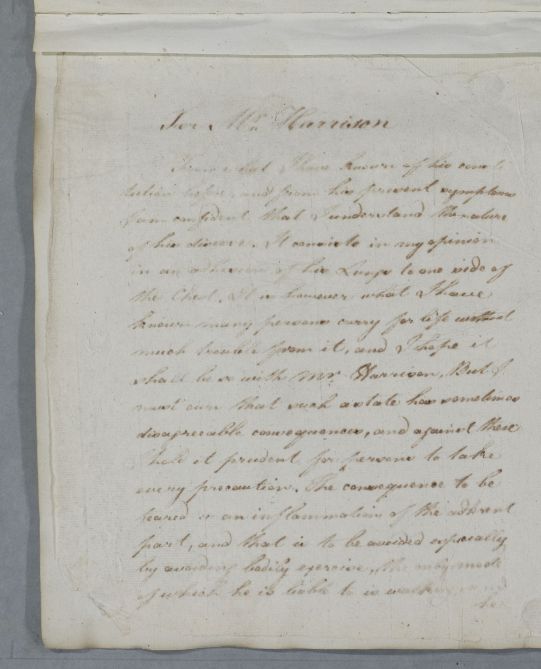 For Mr. Harrison
From what I have known of his consti
tution before, and from his present symptoms
I am confident that I understand the nature
of his disease. It consists in my opinion
in an adhesion of his Lungs to one side of
the Chest. It is however what I have
known many persons carry for life without
much trouble from it, and I hope it
shall be so with Mr. Harrison. But I
must own that such a state has sometimes
disagreeable consequences, and against these
I hold it prudent for persons to take
every precaution. The consequence to be
feared is an inflammation of the adherent
part, and that is to be avoided especially
by avoiding bodily exercise, the only mode
of which he is liable to is walking,